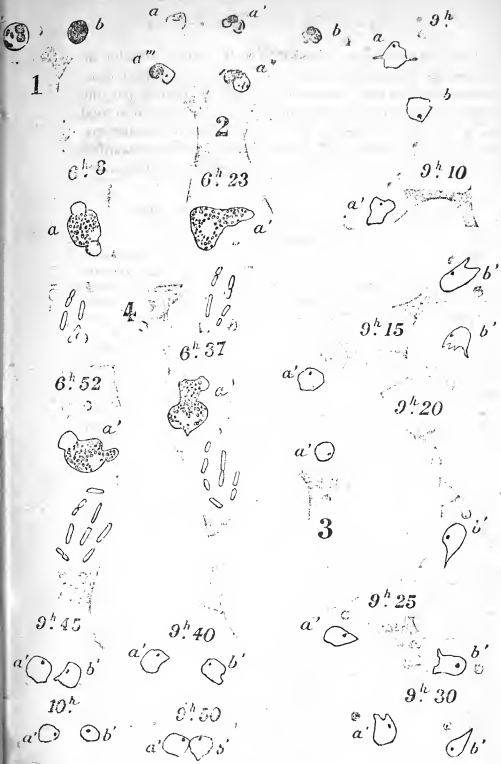 b a a' b 9h.
a''' a'' a
1 b
2
6h.8 6h.23 9h.10
a a' a'
b'
4 9h.15 b'
6h.37
6h.52 a' a' 9h.20
a'
a'
3
b'
9h.25
9h.45 9h.40 a'
a' b' a' b' b'
10h. 9h.50 9h.30
a' b' a' b' a' b'